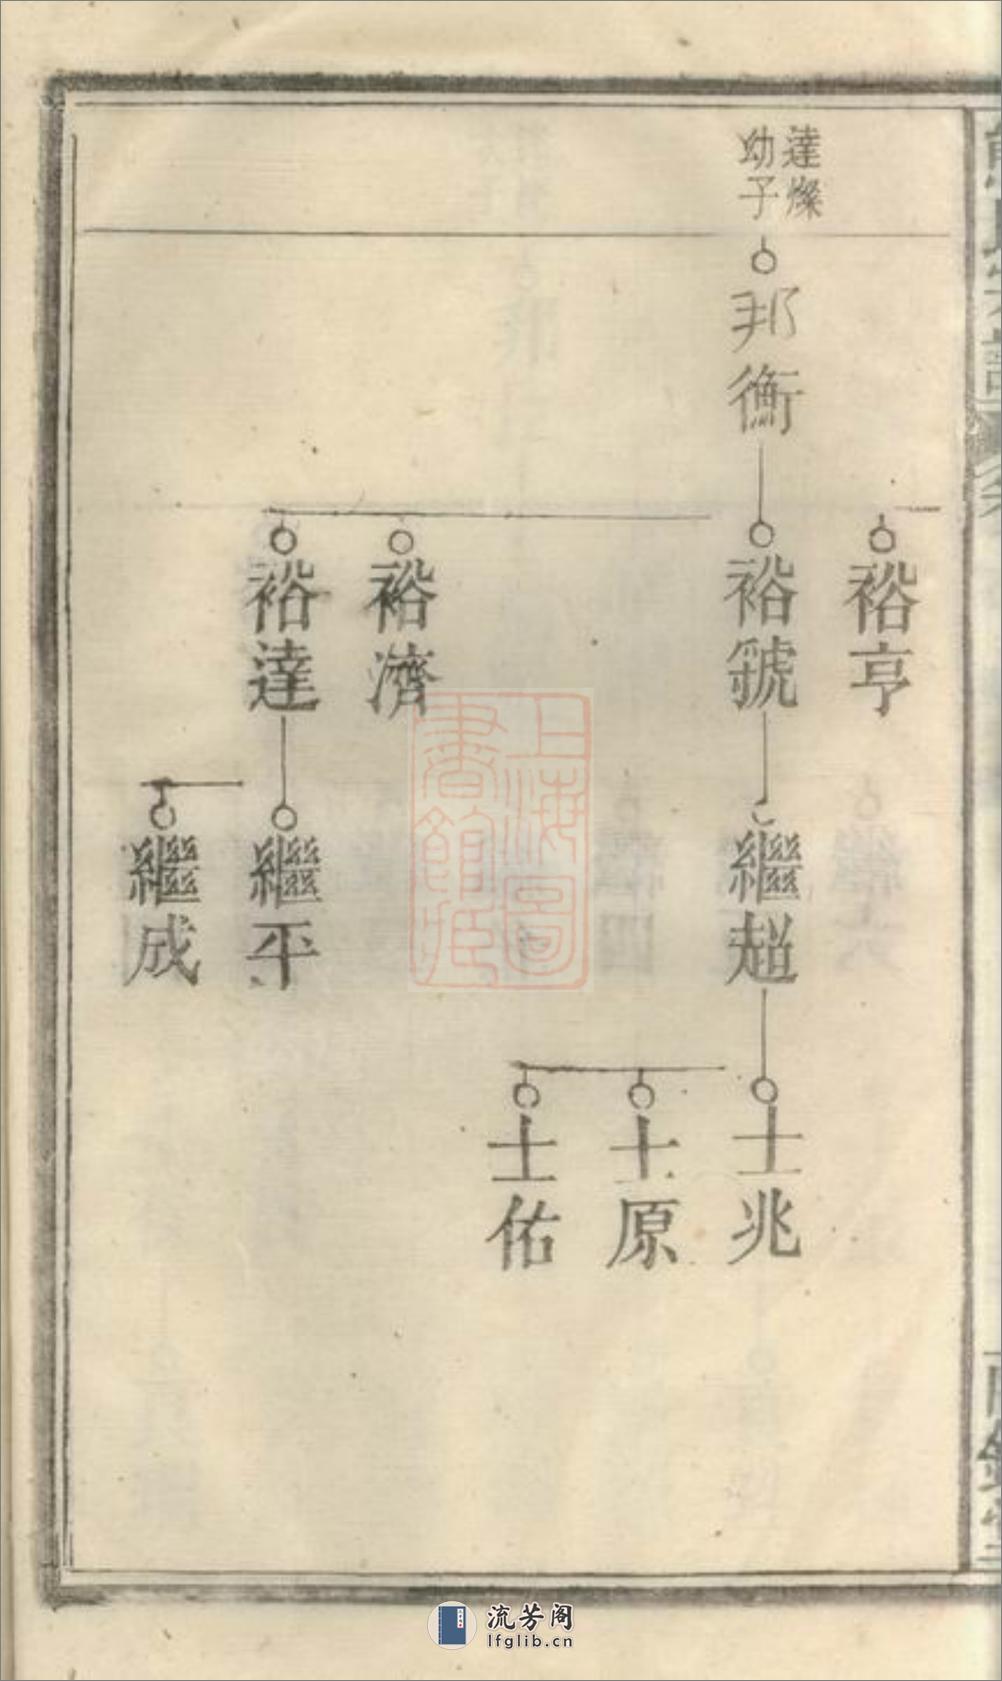 達燦
幼子
邦衡
裕亨
裕號
裕濟
裕達
繼超
繼平
繼成
士兆
士原
士佑
上海圖
書館藏
流芳阁
lfglib.cn